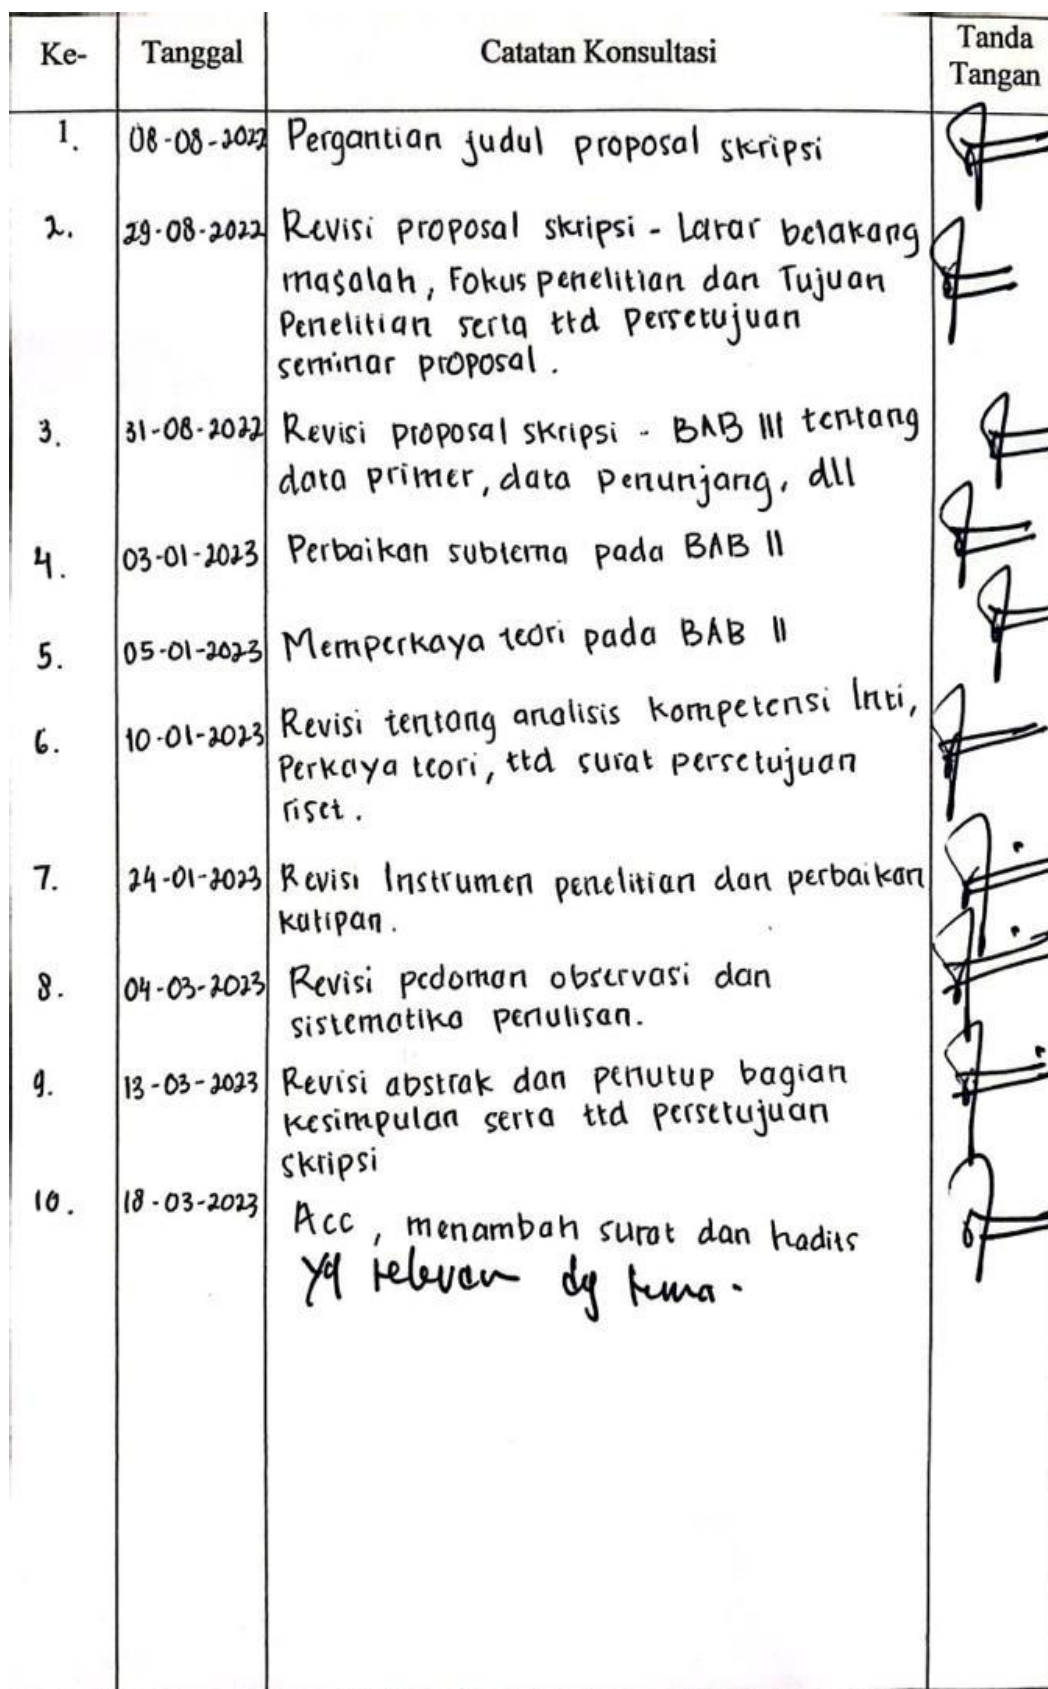 Ke- Tanggal Catatan Konsultasi Tanda Tangan
1. 08-08-2022 Pergantian judul proposal skripsi
2. 29-08-2022 Revisi proposal skripsi - Latar belakang
masalah, Fokus penelitian dan Tujuan
Penelitian serta ttd Persetujuan
seminar proposal.
3. 31-08-2022 Revisi proposal skripsi - BAB III tentang
data primer, data penunjang, dll
4. 03-01-2023 Perbaikan subtema pada BAB II
5. 05-01-2023 Memperkaya teori pada BAB II
6. 10-01-2023 Revisi tentang analisis kompetensi Inti,
Perkaya teori, ttd surat persetujuan
riset.
7. 24-01-2023 Revisi Instrumen penelitian dan perbaikan
kutipan.
8. 04-03-2023 Revisi pedoman observasi dan
sistematika penulisan.
9. 13-03-2023 Revisi abstrak dan penutup bagian
kesimpulan serta ttd persetujuan
skripsi
10. 18-03-2023 Acc, menambah surat dan hadits
yg relevan dg tema.